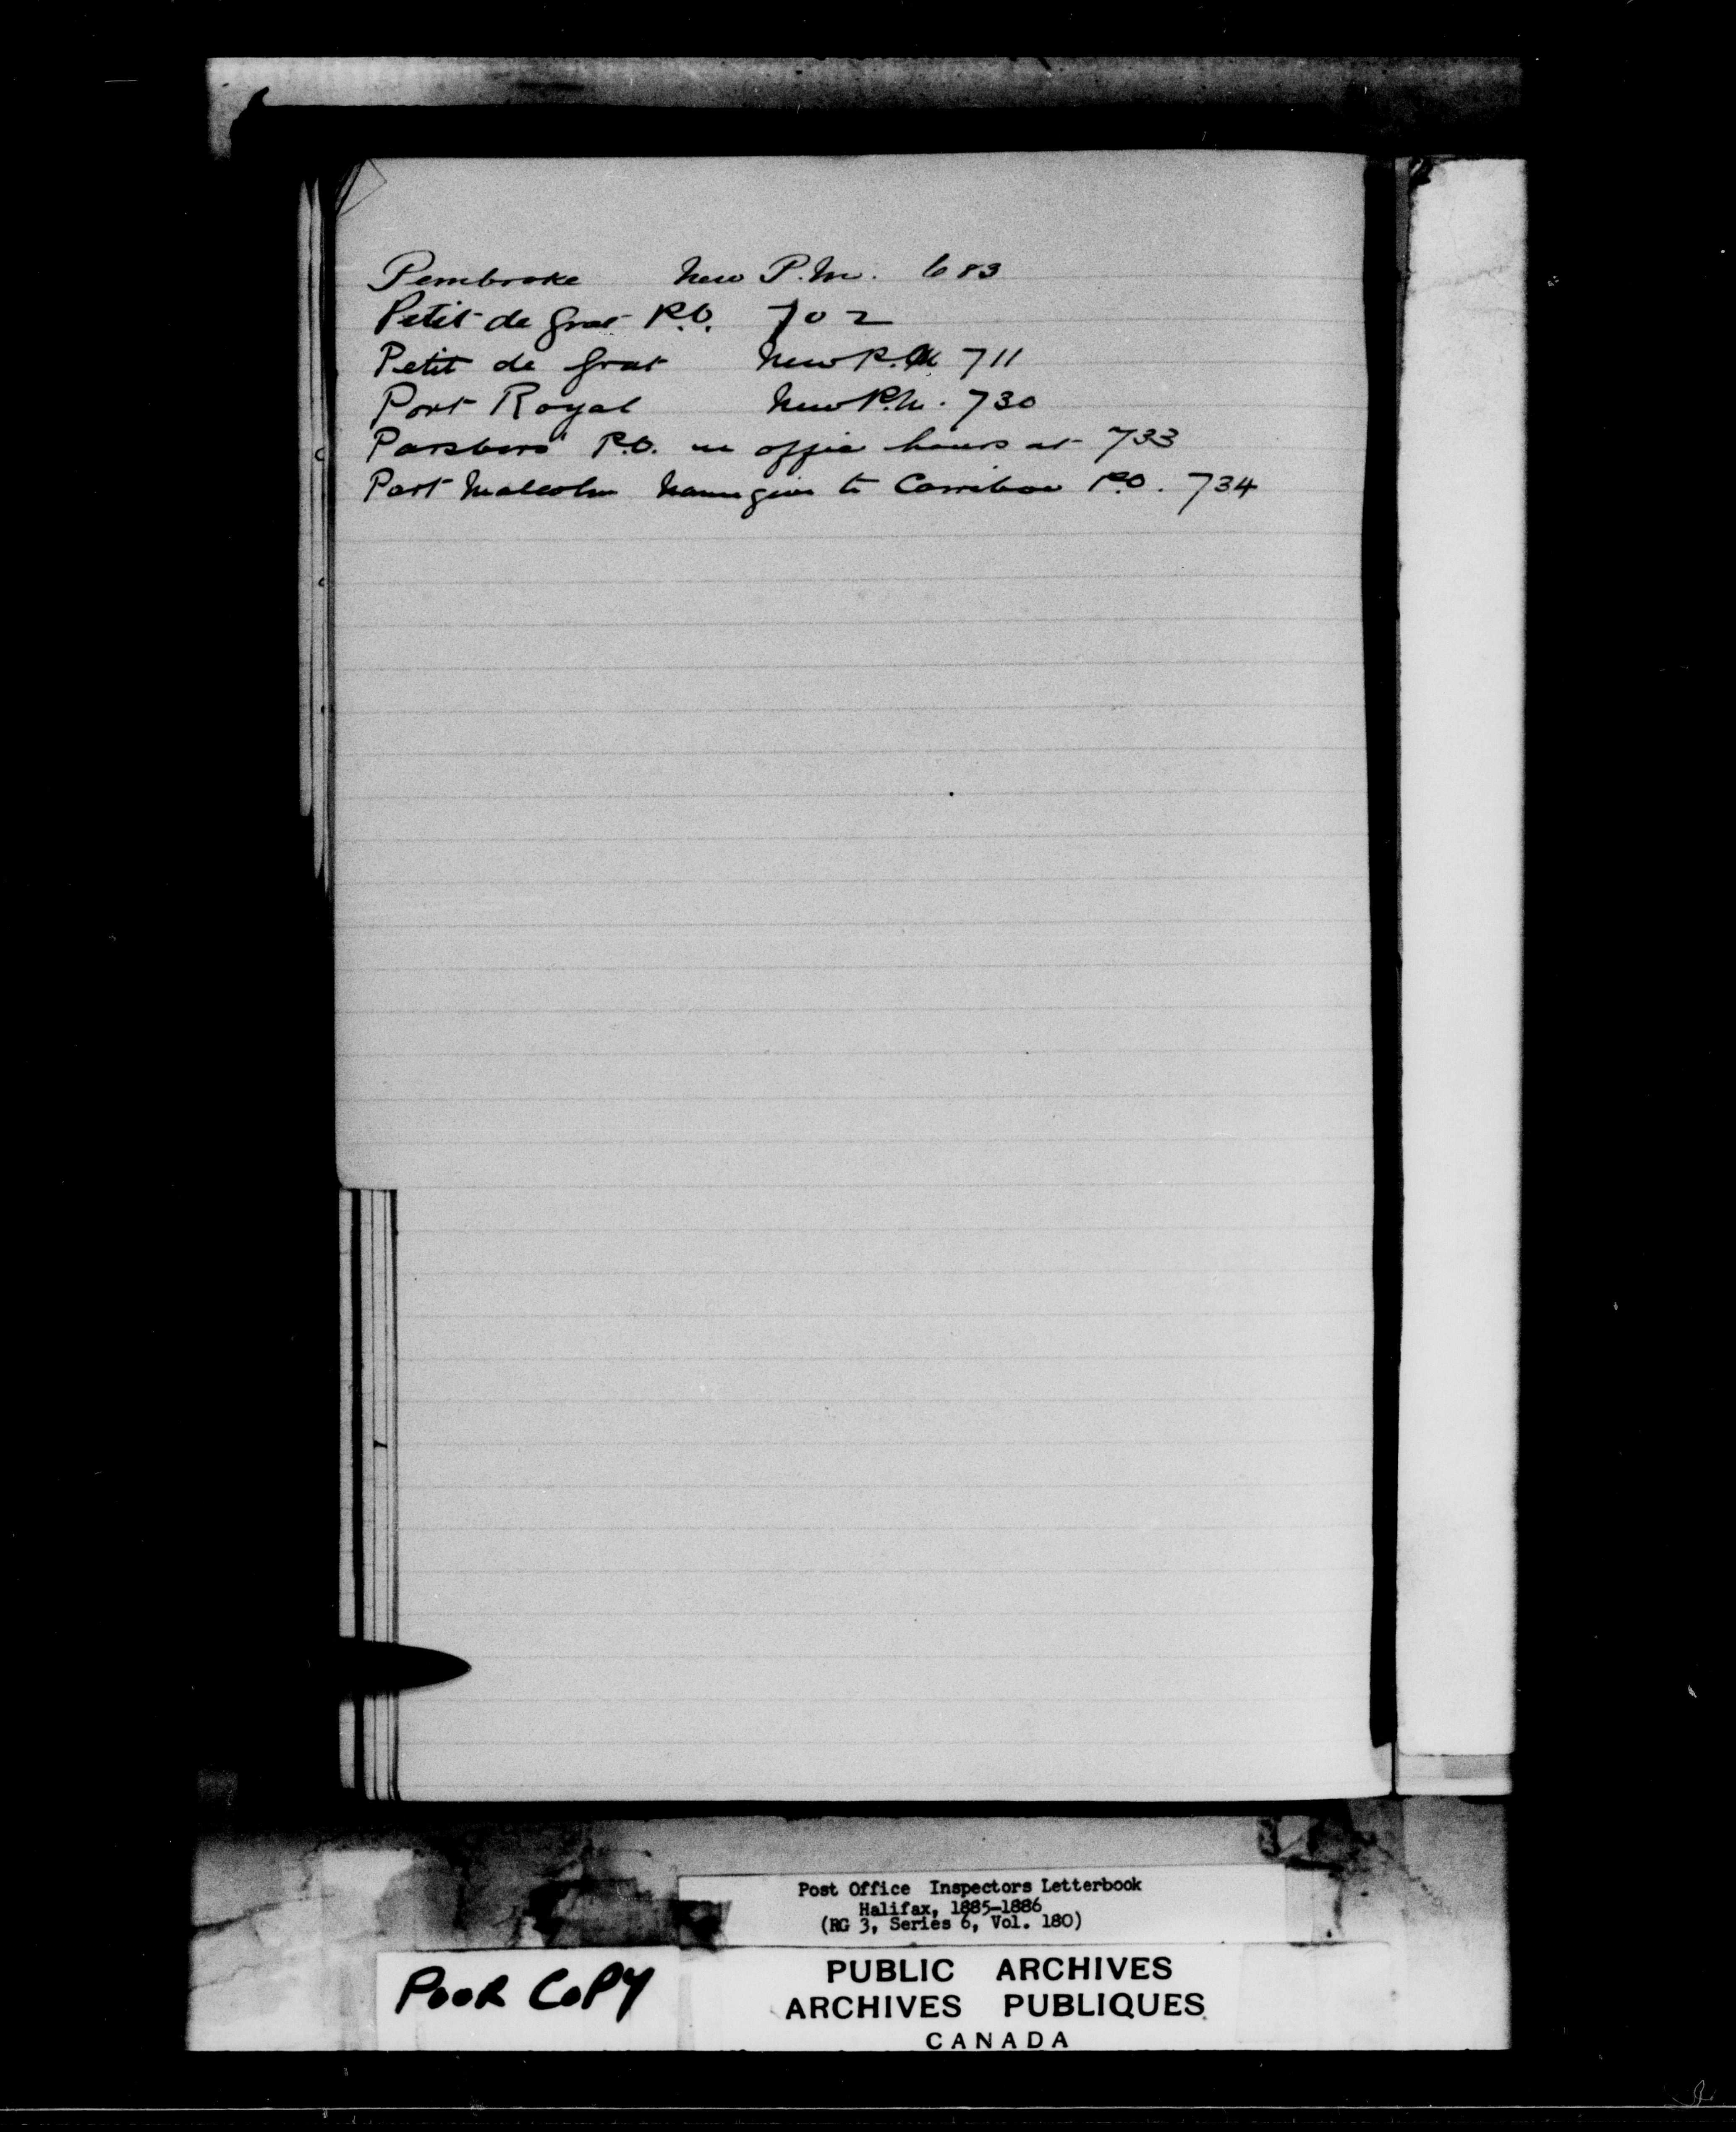 Pembroke New P.M. 683
Petit de Grat P.O. 702
Petit de Grat New P.M 711
Port Royal New P.M. 730
Parsboro' P.O. re office hours at 733
Port Malcolm Name given to Carriboo P.O. 734
Post Office Inspectors Letterbook
Halifax, 1885-1886
(RG 3, Series 6, Vol. 180)
POOR COPY
PUBLIC ARCHIVES
ARCHIVES PUBLIQUES
CANADA